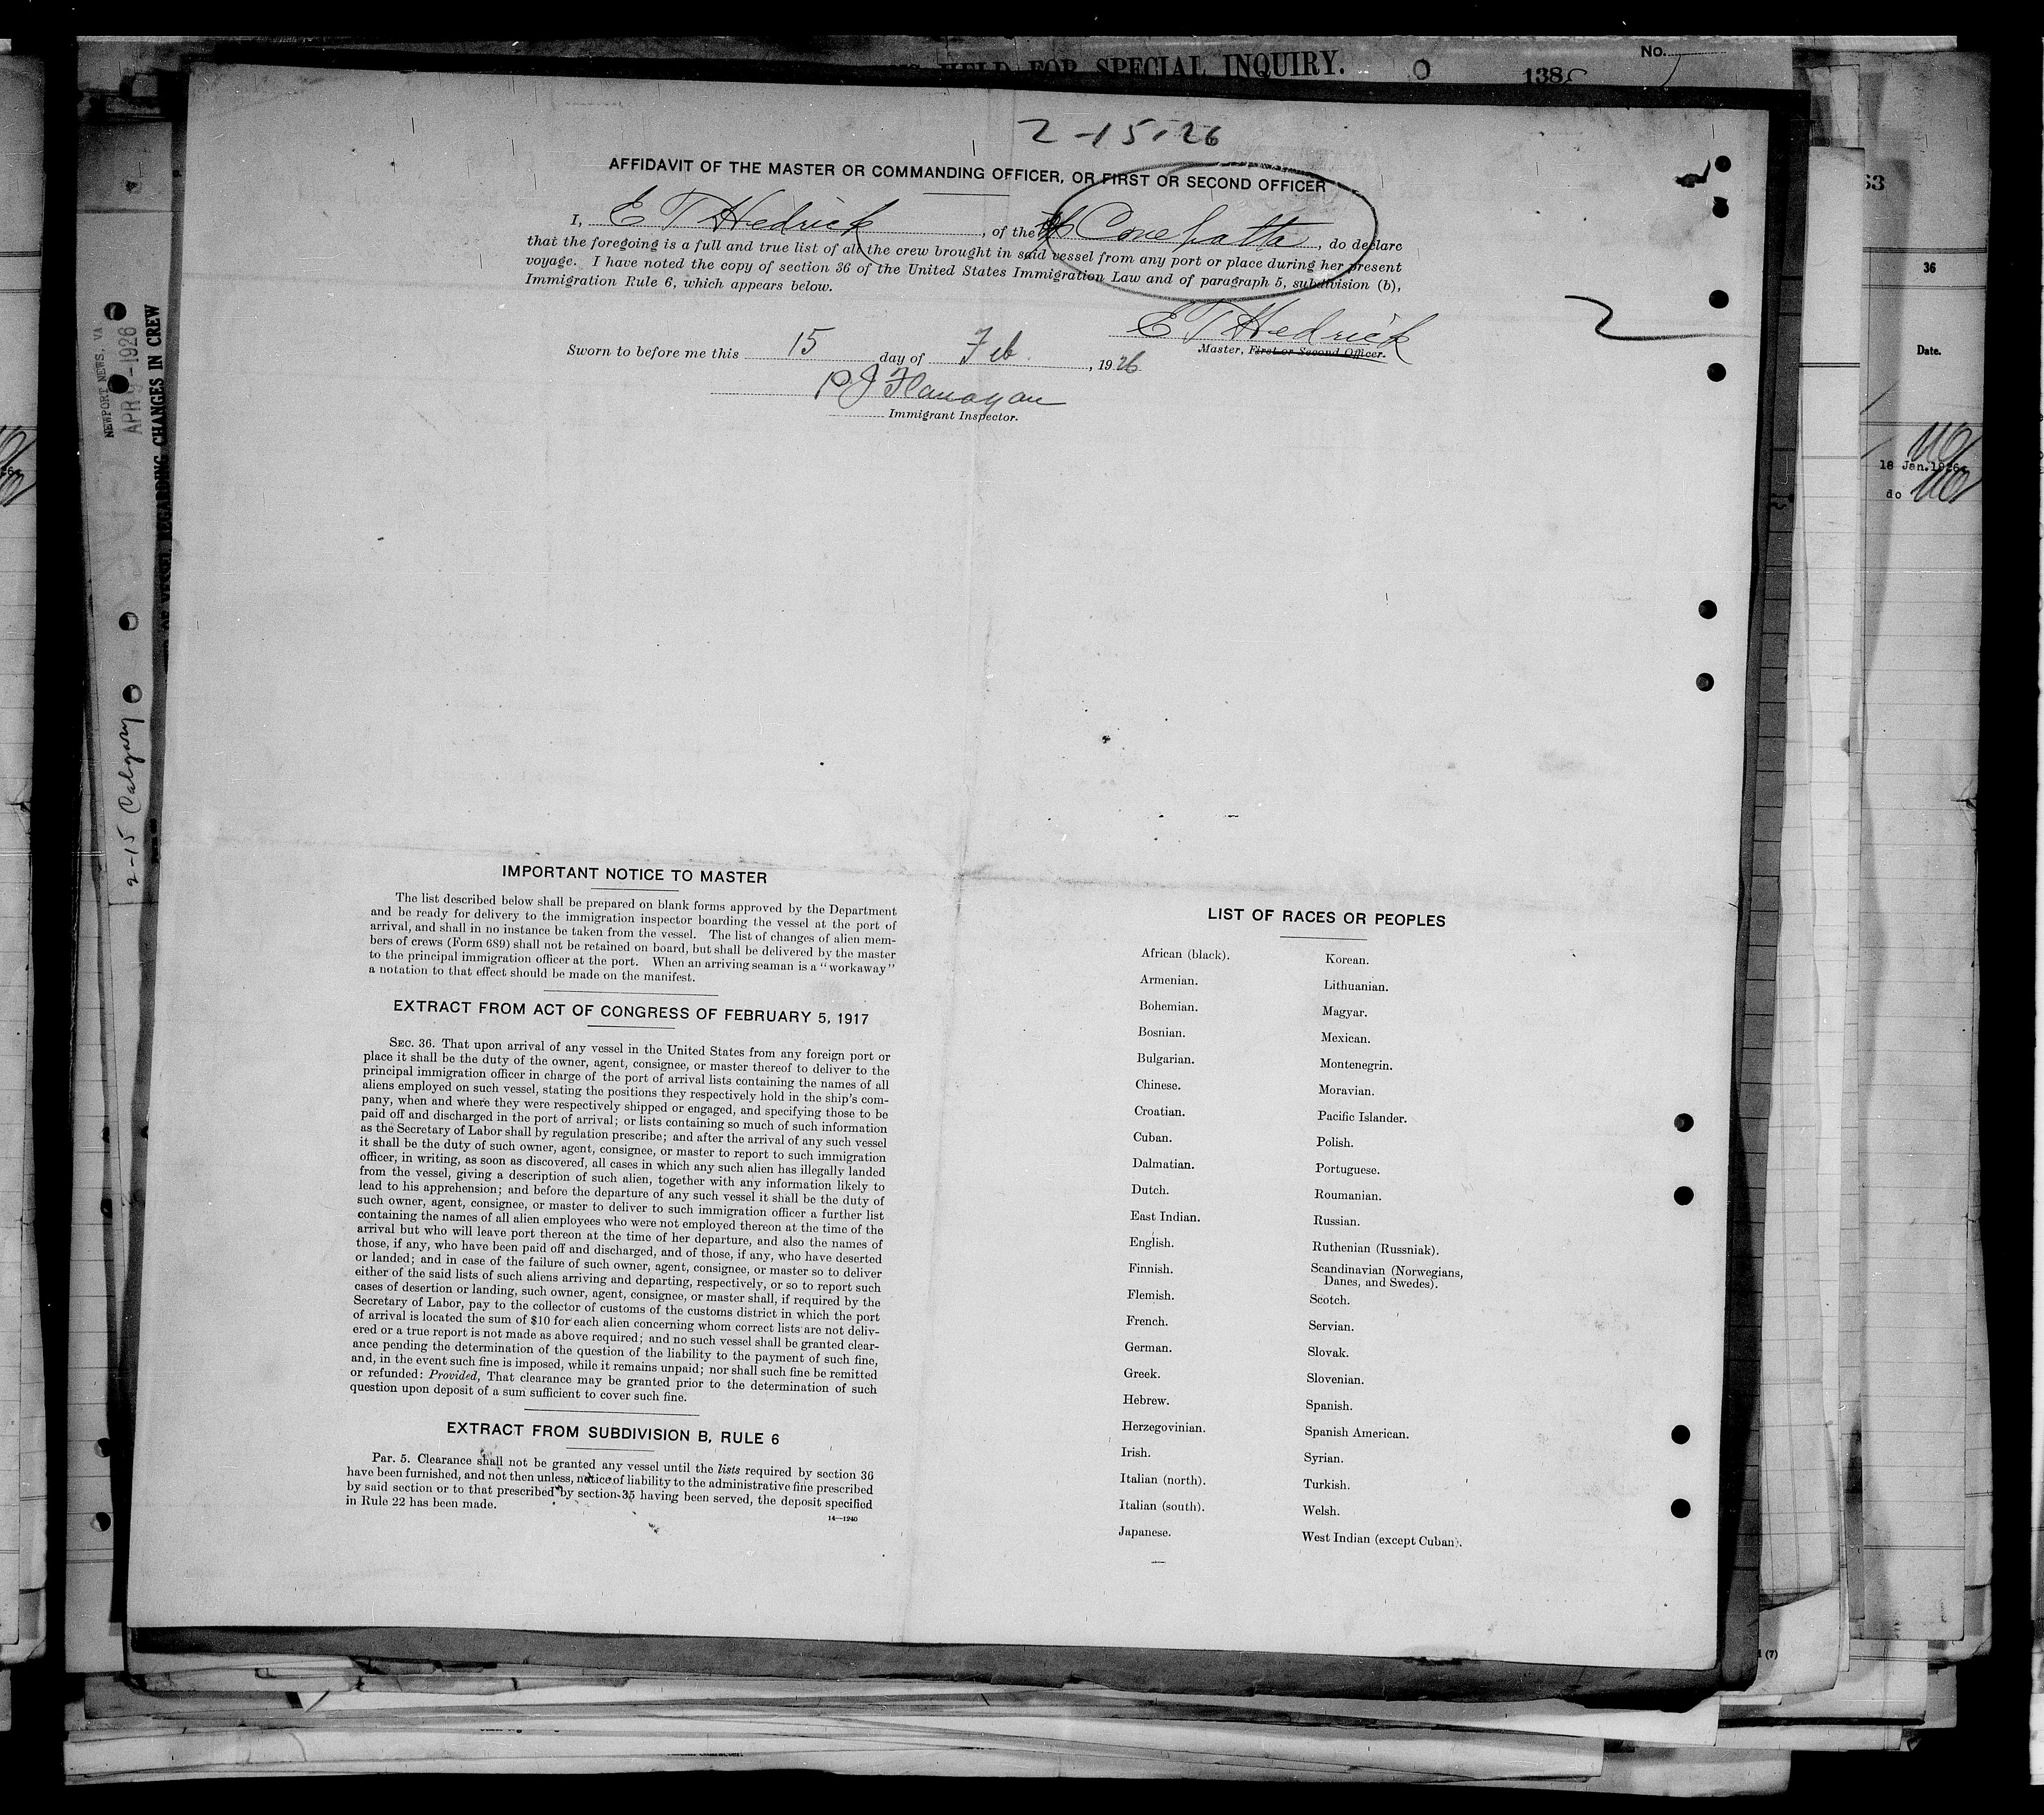 HELD FOR SPECIAL INQUIRY.
No.
138
2-15-26
AFFIDAVIT OF THE MASTER OR COMMANDING OFFICER, OR FIRST OR SECOND OFFICER
I, E T Hedrick, of the Conehatta, do declare
that the foregoing is a full and true list of all the crew brought in said vessel from any port or place during her present
voyage. I have noted the copy of section 36 of the United States Immigration Law and of paragraph 5, subdivision (b),
Immigration Rule 6, which appears below.
E T Hedrick
Master, First or Second Officer.
Sworn to before me this 15 day of Feb, 1926
P J Flanagan
Immigrant Inspector.
IMPORTANT NOTICE TO MASTER
The list described below shall be prepared on blank forms approved by the Department
and be ready for delivery to the immigration inspector boarding the vessel at the port of
arrival, and shall in no instance be taken from the vessel. The list of changes of alien mem-
bers of crews (Form 689) shall not be retained on board, but shall be delivered by the master
to the principal immigration officer at the port. When an arriving seaman is a "workaway"
a notation to that effect should be made on the manifest.
EXTRACT FROM ACT OF CONGRESS OF FEBRUARY 5, 1917
SEC. 36. That upon arrival of any vessel in the United States from any foreign port or
place it shall be the duty of the owner, agent, consignee, or master thereof to deliver to the
principal immigration officer in charge of the port of arrival lists containing the names of all
aliens employed on such vessel, stating the positions they respectively hold in the ship's com-
pany, when and where they were respectively shipped or engaged, and specifying those to be
paid off and discharged in the port of arrival; or lists containing so much of such information
as the Secretary of Labor shall by regulation prescribe; and after the arrival of any such vessel
it shall be the duty of such owner, agent, consignee, or master to report to such immigration
officer, in writing, as soon as discovered, all cases in which any such alien has illegally landed
from the vessel, giving a description of such alien, together with any information likely to
lead to his apprehension; and before the departure of any such vessel it shall be the duty of
such owner, agent, consignee, or master to deliver to such immigration officer a further list
containing the names of all alien employees who were not employed thereon at the time of the
arrival but who will leave port thereon at the time of her departure, and also the names of
those, if any, who have been paid off and discharged, and of those, if any, who have deserted
or landed; and in case of the failure of such owner, agent, consignee, or master so to deliver
either of the said lists of such aliens arriving and departing, respectively, or so to report such
cases of desertion or landing, such owner, agent, consignee, or master shall, if required by the
Secretary of Labor, pay to the collector of customs of the customs district in which the port
of arrival is located the sum of $10 for each alien concerning whom correct lists are not deliv-
ered or a true report is not made as above required; and no such vessel shall be granted clear-
ance pending the determination of the question of the liability to the payment of such fine,
and, in the event such fine is imposed, while it remains unpaid; nor shall such fine be remitted
or refunded: Provided, That clearance may be granted prior to the determination of such
question upon deposit of a sum sufficient to cover such fine.
EXTRACT FROM SUBDIVISION B, RULE 6
Par. 5. Clearance shall not be granted any vessel until the lists required by section 36
have been furnished, and not then unless, notice of liability to the administrative fine prescribed
by said section or to that prescribed by section 35 having been served, the deposit specified
in Rule 22 has been made.
14—1240
LIST OF RACES OR PEOPLES
African (black).
Armenian.
Bohemian.
Bosnian.
Bulgarian.
Chinese.
Croatian.
Cuban.
Dalmatian.
Dutch.
East Indian.
English.
Finnish.
Flemish.
French.
German.
Greek.
Hebrew.
Herzegovinian.
Irish.
Italian (north).
Italian (south).
Japanese.
Korean.
Lithuanian.
Magyar.
Mexican.
Montenegrin.
Moravian.
Pacific Islander.
Polish.
Portuguese.
Roumanian.
Russian.
Ruthenian (Russniak).
Scandinavian (Norwegians,
Danes, and Swedes).
Scotch.
Servian.
Slovak.
Slovenian.
Spanish.
Spanish American.
Syrian.
Turkish.
Welsh.
West Indian (except Cuban).
NEWPORT NEWS, VA
APR 9-1926
VESSEL REGARDING CHANGES IN CREW
2-15 Calgary
63
36
Date.
18 Jan.1926
do
(7)